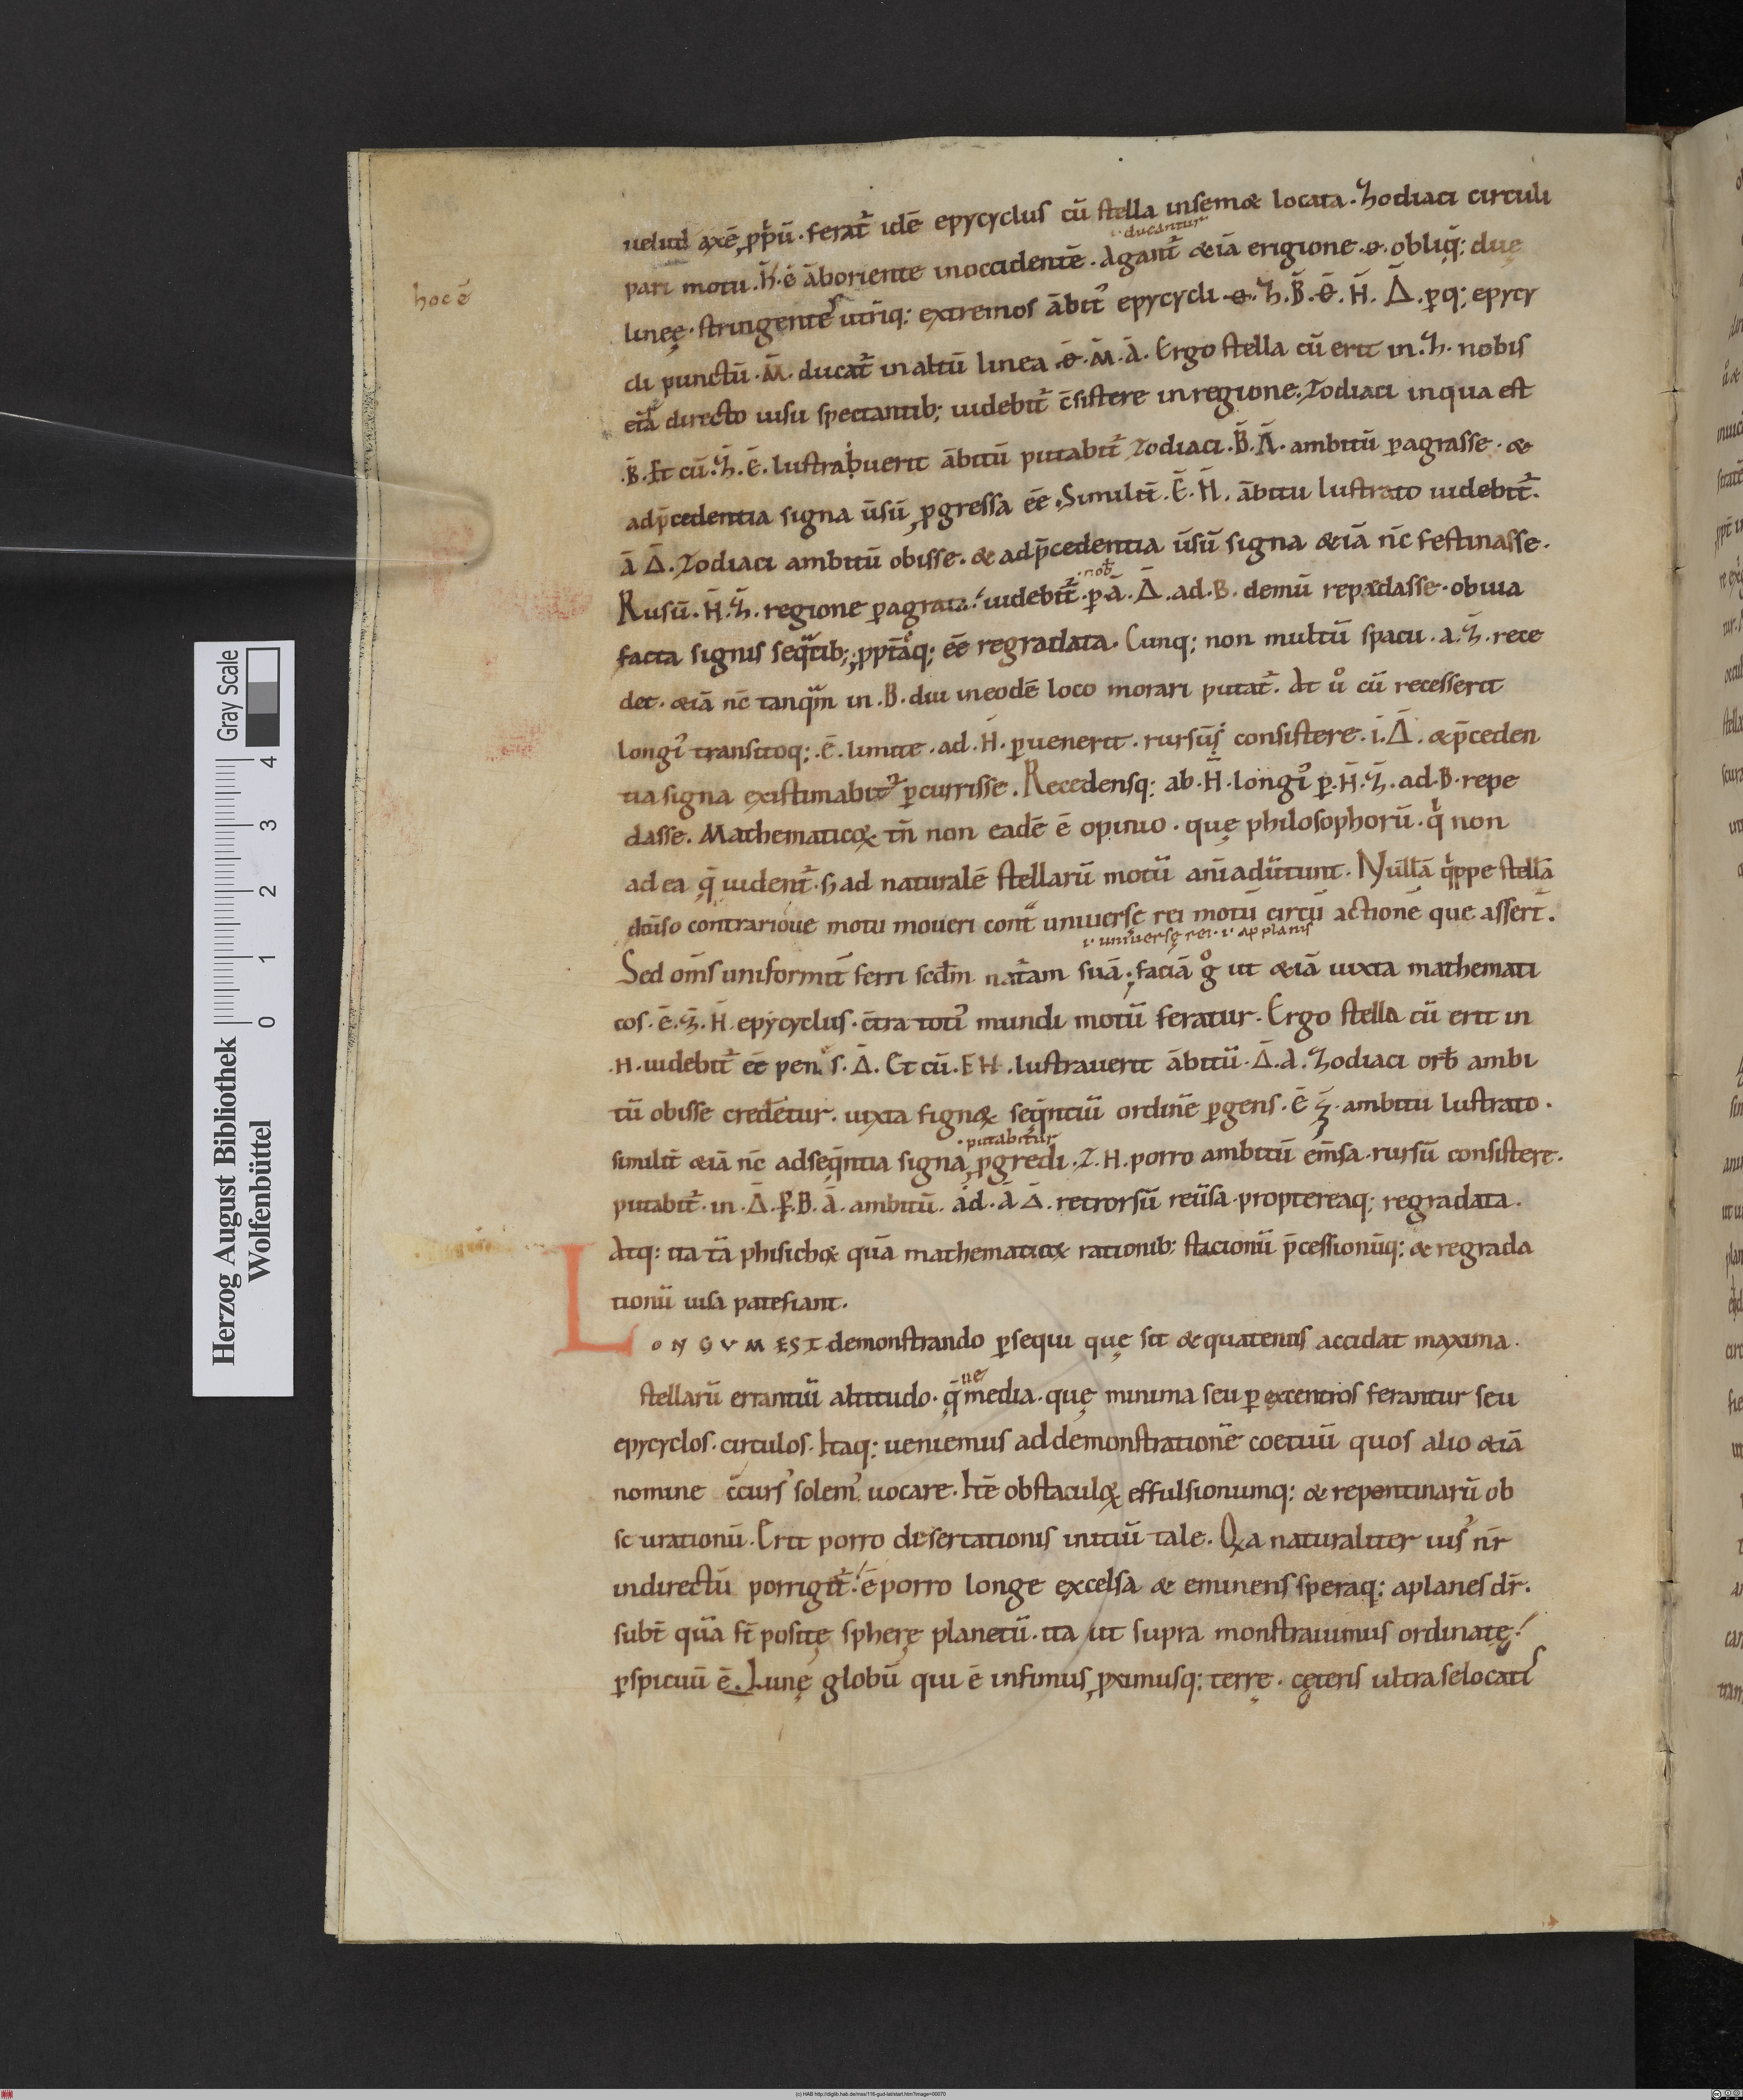 uelud axē ꝓpͥū · ferat᷑ idē epycyclus cū stella in semꝫ locata · Zodiaci circuli
·i· ducantur
pari motu · h̄ · ē āb oriente in occidentē · Agant᷑ &iā e rigione · Θ · obliq̨; due
hoc ē
lineę · stringentes utriq; extremos ābit᷒ epycycli · Θ · Z · B̄ · Θ̄ · H̄ · Δ̄ · ꝑq; epycy
cli punctū · M̄ · ducat᷑ in altū linea · Θ̄ · M̄ · Ā · Ergo stella cū erit in · Z̄ · nobis
eiā directo uisu spectantib; uidebit᷑ c̄sistere in regione · Zodiaci in qua est
· B̄ · Et cū · Z̄ · Ē · lustrabuerit ābitū putabit᷑ Zodiaci · B̄ · Ā · ambitū ꝑagrasse · &
ad p̄cedentia signa ūsū ꝓgressa ēe · Similit̄ · Ē · H̄ · ābitu lustrato uidebit᷑ ·
Ā Δ̄ · Zodiaci ambitū obisse · & ad p̄cedentia ūsū signa &iā nc̄ festinasse ·
· nob̄
Rusū · H̄ · Z̄ · regione ꝑagrata · uidebit᷑ · ꝑ · Ā · Δ̄ · ad · B · demū repedasse · obuia
facta signis seq̄tib; ꝓpt̄aq; ēe regradata · Cunq; non multū spacii · a · Z̄ · rece
det · &iā nc̄ tanqm̄ in · B · diu in eodē loco morari putat᷑ · At uͦ cū recesserit
longi᷒ transitoq; · ē · limite · ad · H̄ · ꝑuenerit · rursūs consistere · i · Δ̄ · & p̄ceden
tia signa existimabit᷑ ꝑcurrisse · Recedensq; ab · H̄ · longi᷒ ꝑ · H̄ · Z̄ · ad · B · repe
dasse · Mathematicoꝝ tn̄ non eadē ē opinio · quę philosophorū · qͥ non
ad ea q̨̄ uident᷑ · s; ad naturalē stellarū motū animaduertunt · Nullā qͥppe stellā
diuiso contrarioue motu moueri cont̄ uniuerse rei motū circū actionē que assert̄ ·
·i· uniuersę rei · ·i· applanis
Sed om̄s uniformit̄ ferri scdm̄ natᷓam suā; faciā gͦ ut &iā iuxta mathemati
cos · Ē · Z̄ · H̄ · epycyclus · c̄tra toti᷒ mundi motū feratur · Ergo stella cū erit in
· H · uidebit᷑ ēe penes · Δ̄ · Et cū · E H · lustrauerit ābitū · Δ̄ · A · Zodiaci orb̄ ambi
tū obisse credetur · iuxta signoꝝ seq̄ntiū ordinē ꝑgens · Ē Z̄ · ambitu lustrato ·
· putabitur
similit̄ &iā nc̄ ad seq̄ntia signa ꝓgredi · Z · H · porro ambitū em̄sa · rursū consistere ·
putabit᷑ · in · Δ̄ · ꝑ · B · Ā · ambitū · ad · Ā Δ̄ · retrorsū reūsa · proptereaq; regradata ·
Atq; ita tā phisicoꝝ quā mathematicoꝝ rationib; stacionū p̄cessionūq; & regrada
tionū uisa patefiant ·
LONGVM EST demonstrando ꝑsequi quę sit & quatenus accidat maxima ·
ue
stellarū errantiū altitudo · q̨̄ media · quę minima seu ꝑ excentros ferantur seu
epycyclos · circulos · Itaq; ueniemus ad demonstrationē coetuū quos alio &iā
nomine c̄curs᷒ solem᷒ uocare · Itē obstaculoꝝ effulsionumq; & repentinarū ob
scurationū · Erit porro desertationis initiū tale · Qꝛa naturaliter uis᷒ nr̄
in directū porrigit᷑ · ē porro longe excelsa & eminens speraq; aplanes dr̄ ·
subt̄ quā st̄ positę spherę planetū · ita ut supra monstrauimus ordinatę ·
ꝑspicuū ē · Lunę globū qui ē infimus ꝓximusq; terrę · cęteris ultra se locatis
Herzog August Bibliothek
Wolfenbüttel
0 1 2 3 4
Gray Scale
(c) HAB http://diglib.hab.de/mss/116-gud-lat/start.htm?image=00070